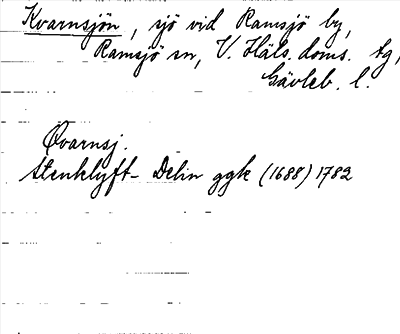 Kvarnsjön, sjö vid Ramsjö by,
Ramsjö sn, V. Häls. doms. tg,
Gävleb. l.
Qvarnsj.
Stenklyft- Delin ggk (1688) 1782